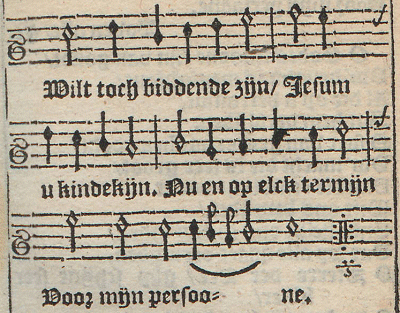 Wilt toch biddende zijn/ Jesum
u kindekijn. Nu en op elck termijn
Voor mijn persoo⸗ ne.